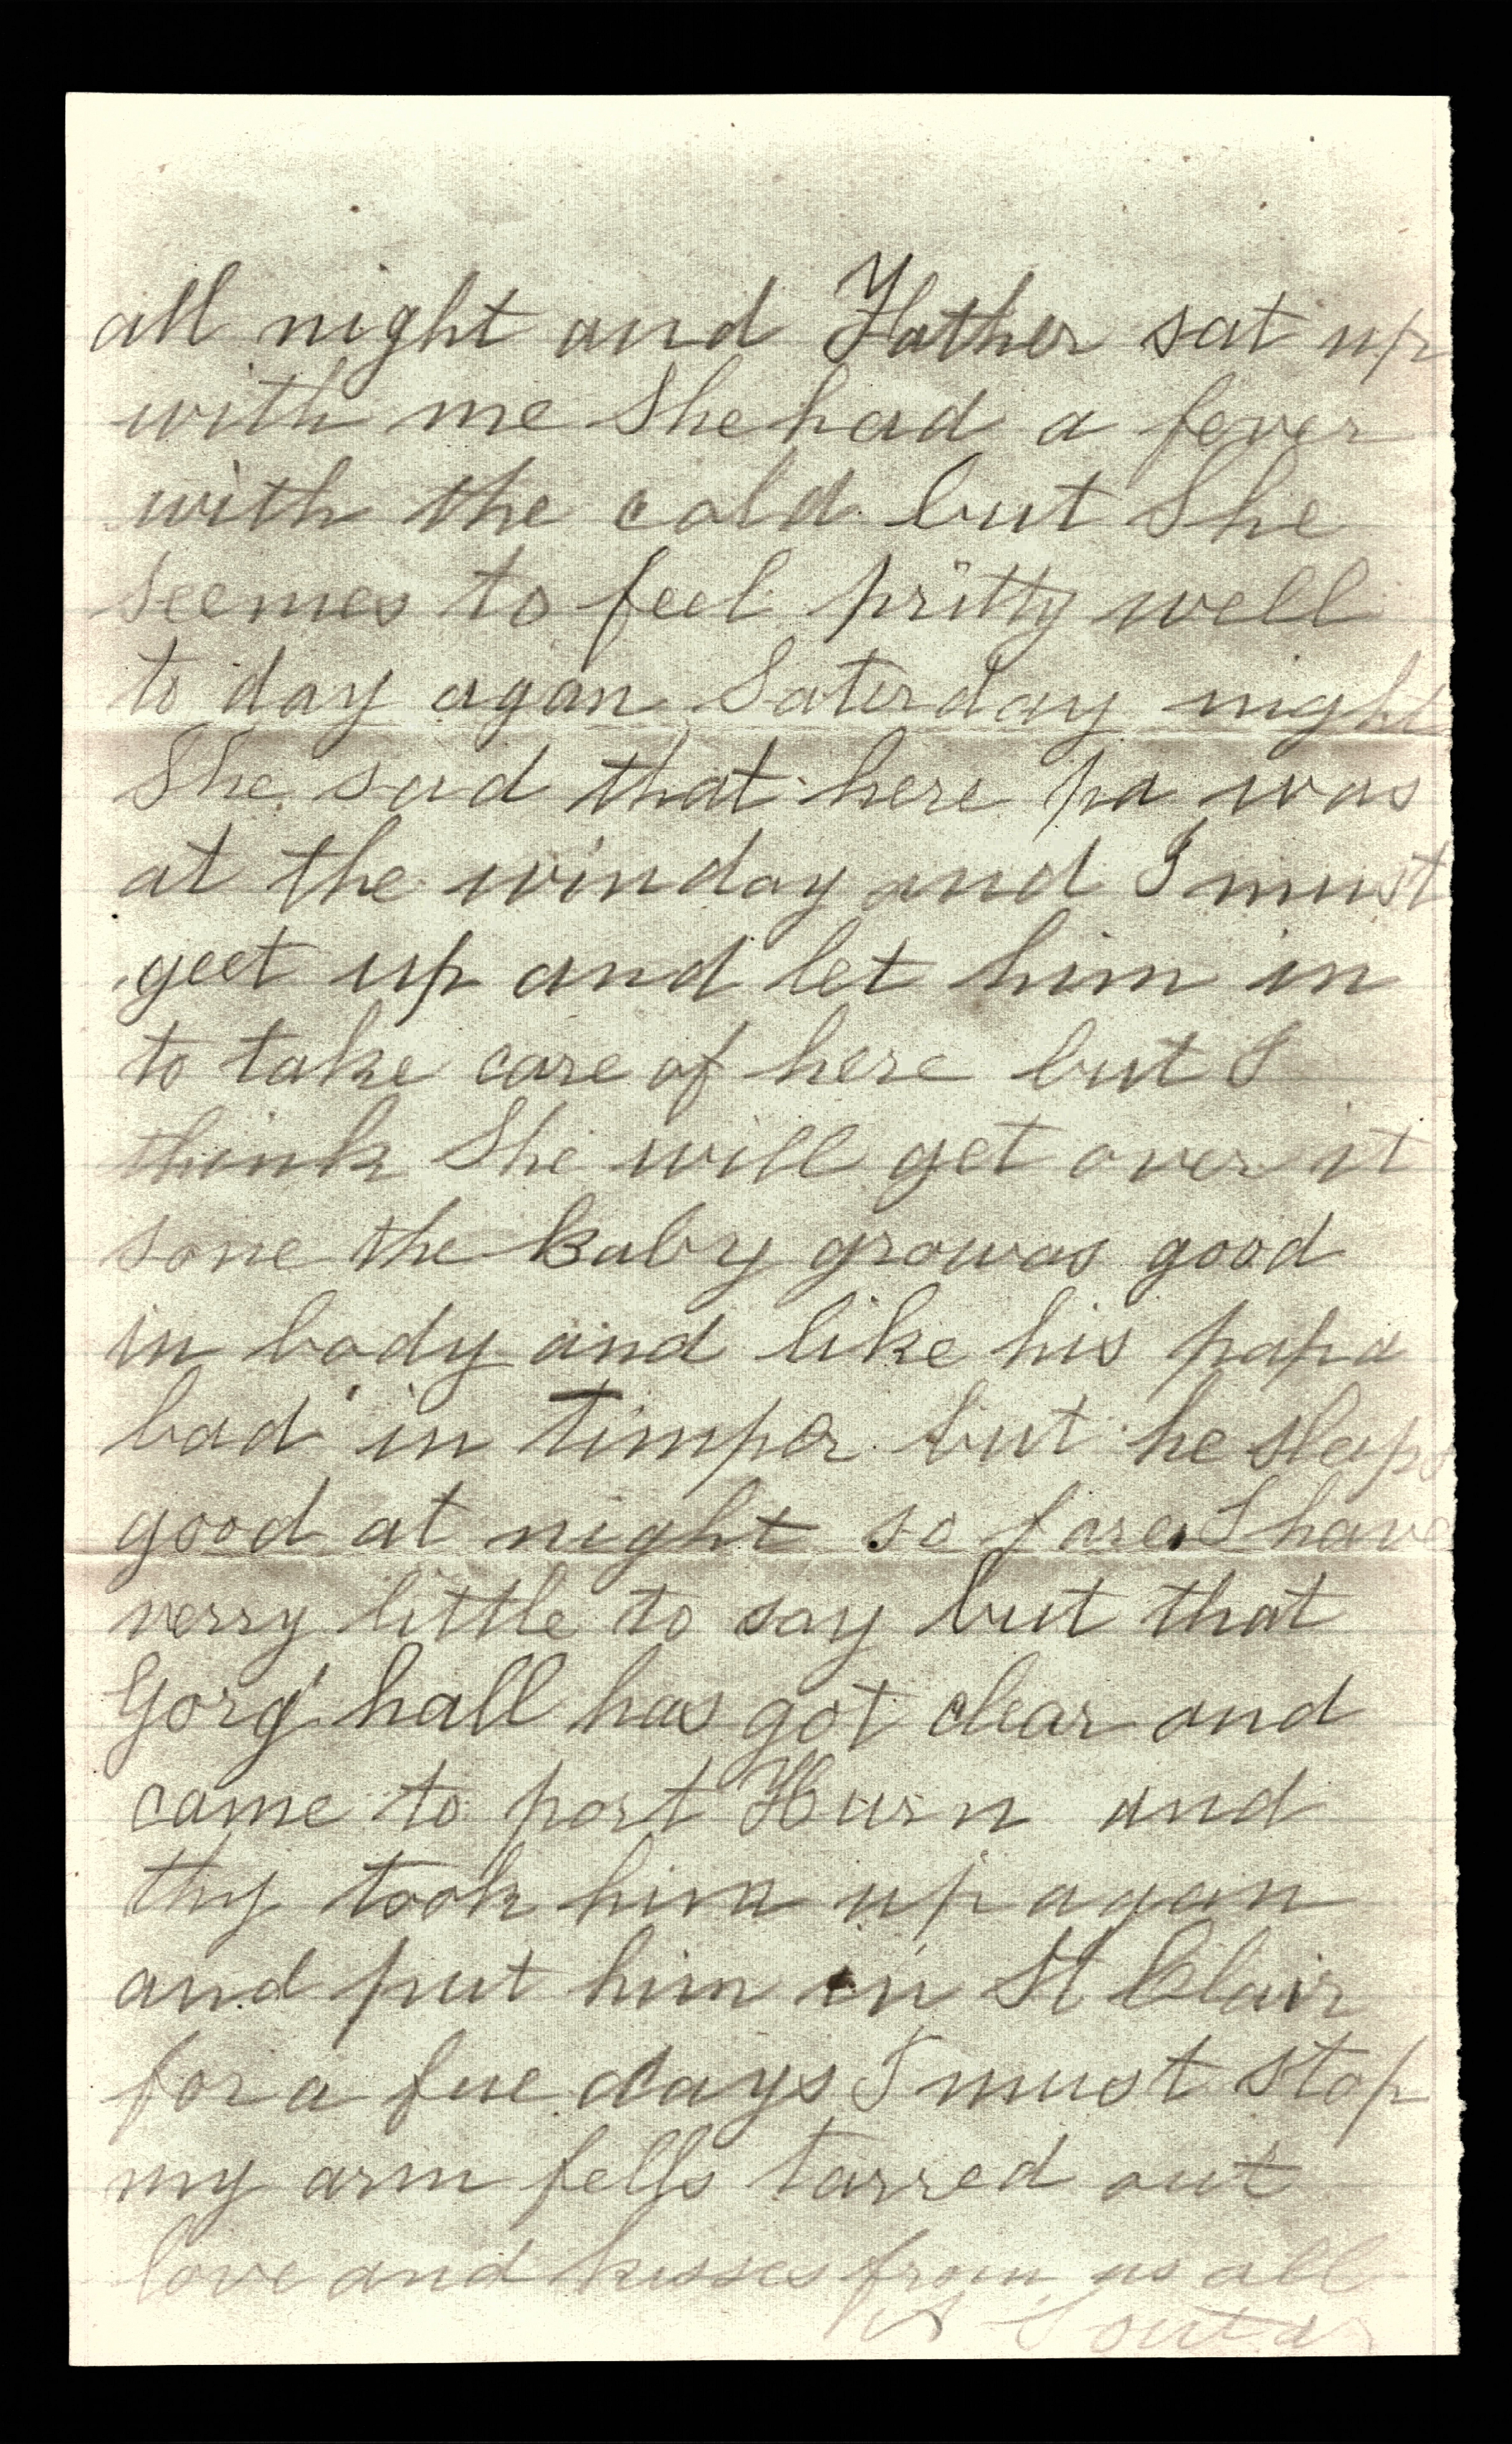 all night and Father sat up
with me She had a fever
with the cold but She
seemes to feel pritty well
to day agan Saterday night
She sad that here pa was
at the winday and I must
geet up and let him in
to take care of here but I
think She will get over it
sone the baby growas good
in body and like his papa
bad in timper but he sleaps
good at night so fare I have
verry little to say but that
Gorg hall has got clear and
came to port Hurn and
thy took him up agan
and put him in St Clair
for a fue days I must stop
my arm fells tarred out
love and kisses from us all
Soutar